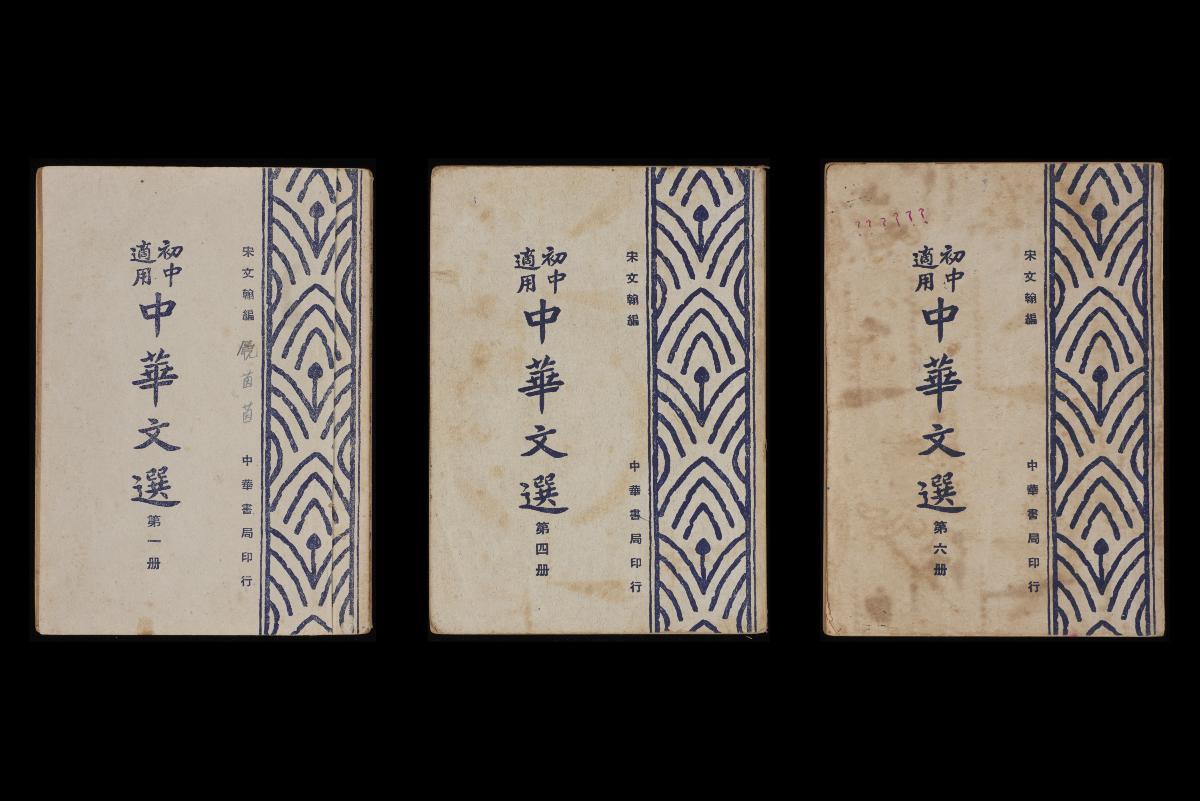 宋文翰編
中華書局印行
初中
適用
中華文選
第一册
宋文翰編
中華書局印行
初中
適用
中華文選
第四册
宋文翰編
中華書局印行
初中
適用
中華文選
第六册
? ? ? ? ? ?